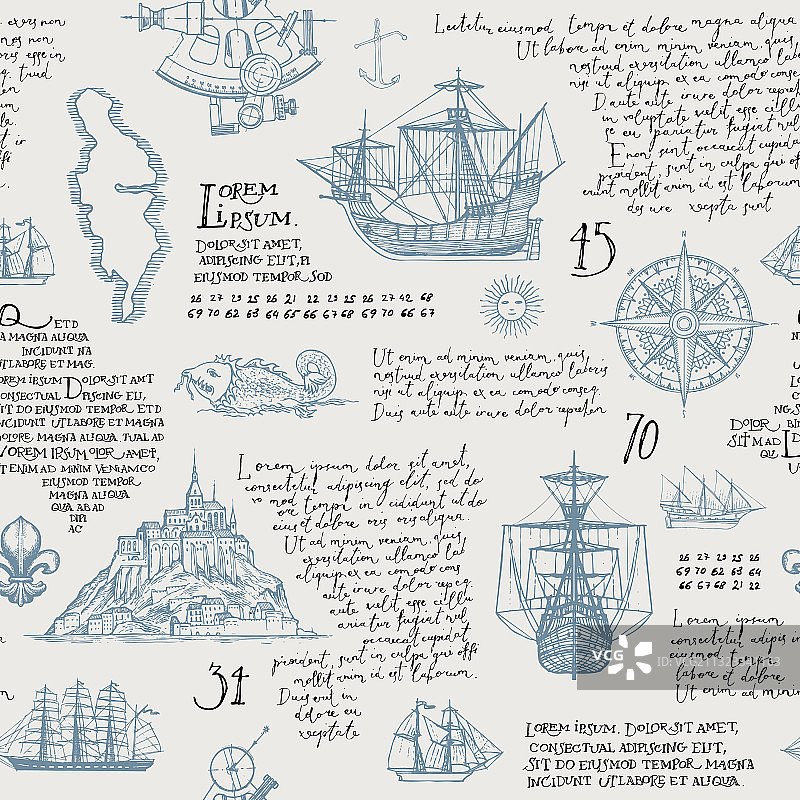 exers non
nos non
oris esse in
q. tuid
en
um
le.
t in
Lectetur eiusmod tempr et dolore magna aliqua
Ut labore ad enim minim veniam, quis
nostrud exersitation ullamco labo
nisi ut aliquip ex ea comodo conse
Duis aute irure dolor repreh
in voluptate velit esse cillu
se eu pariatur fugiat nul
E non sint, occaecat cupidat
proident, sunt in culpa qui of
erunt mollit anim id est laborum
des ure xepta sunt
LOREM
IPSUM.
DOLOR SIT AMET,
ADIPISCING ELIT, PI
EIUSMOD TEMPOR SOD
26 27 29 25 26 21 22 29 25 26 27 42 68
69 70 62 63 64 65 66 67 68 69 70 66 67
45
Q ETD
A MAGNA ALIQUA
INCIDUNT NA
UT LABORE ET MAG.
OREM IPSUM DOLOR SIT AMT
CONSECTUAL PISCING ELI,
SIT DO EIUSMOD TEMPOR ETD
INCIDUNT UT LABORE ET MAGNA
DOLORE MAGNA ALIQUA. TUAL AD
LOREM IPSUM OLOR AMET,
T ENIM AD MINIM VENIAM, QUIS
EIUSMOD TEMPOR
MAGNA ALIQUA
QUA ABAD
DIPI
AC
Ut enim ad minim veniam, quis,
nostrud exersitation ullamco laboris
nisi ut aliquip ex ea comodo conseq.
Duis aute aute irure dolor reprehen
70
DOLOR
SIT M AD
QU
Lorem ipsum dolor sit amet,
consectetur adipiscing elit, sed do
mod tempr in cididunt ut do
eius et dolore oris eris aliqua.
Ut ad minim veniam, quis
exersitation ullamco lab
aliquip ex ea comodo cons
aute irure dolor rep eq.
aute velit esse cillu
ariatur fugiat nul
occaecat cupidat
proident, sunt in culpa qui offi
mollit anim id est laborum.
Duis erit in
dolore eu
voeptate
34
26 27 29 25 26
69 70 62 63 64
66 67 68 21 22
Lorem ipsum
consectetur adipis in
eiusmod tempr
labore et dolore
Ut enim ad minim
VCG
LOREM IPSUM. DOLOR SIT AMET,
CONSECTUAL ADIPISCING ELIT,
SIT DO EIUSMOD TEMPOR MAGNA
INCIDUNT UT LABORE ET ALIQUA.